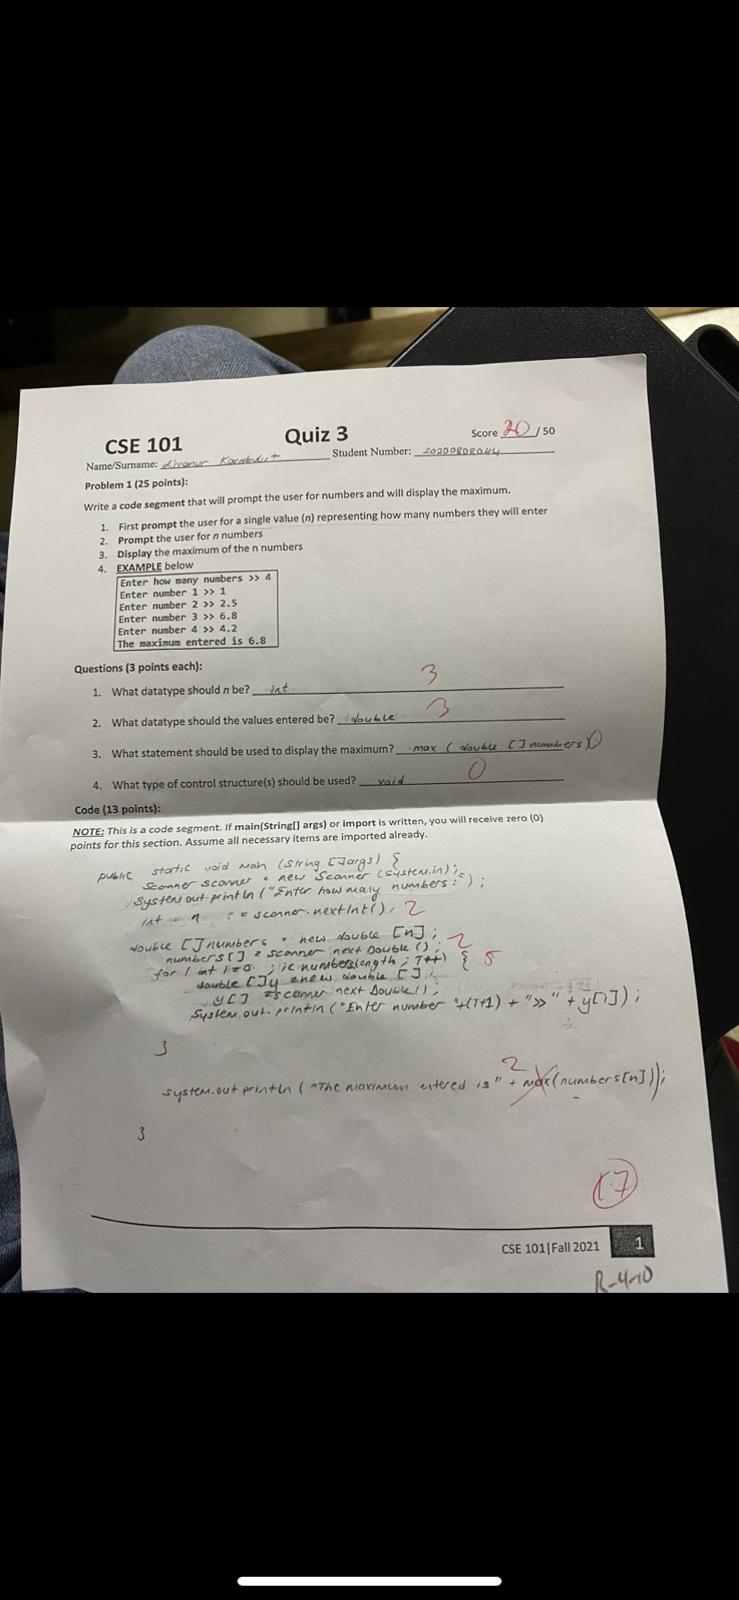 CSE 101
Quiz 3
Score 20 / 50
Name/Surname: Karabulut
Student Number: 20200808044
Problem 1 (25 points):
Write a code segment that will prompt the user for numbers and will display the maximum.
1. First prompt the user for a single value (n) representing how many numbers they will enter
2. Prompt the user for n numbers
3. Display the maximum of the n numbers
4. EXAMPLE below
Enter how many numbers >> 4
Enter number 1 >> 1
Enter number 2 >> 2.5
Enter number 3 >> 6.8
Enter number 4 >> 4.2
The maximum entered is 6.8
Questions (3 points each):
1. What datatype should n be? int 3
2. What datatype should the values entered be? double 3
3. What statement should be used to display the maximum? max ( double [] numbers) 0
4. What type of control structure(s) should be used? void 0
Code (13 points):
NOTE: This is a code segment. If main(String[] args) or import is written, you will receive zero (0)
points for this section. Assume all necessary items are imported already.
public static void Main (String []args) {
Scanner scanner = new Scanner (System.in);
System.out.println ("Enter how many numbers : ");
int n = scanner.nextInt(); 2
double []numbers = new double [n]; 2
numbers[] = scanner.next Double ();
for ( int i=0 ; i< numbers.length ; i++) { 5
double []y = new double [];
y[] = scanner.next Double();
System.out.println ("Enter number "+(i+1) + ">>" + y[i]);
}
2
System.out.println ( "The maximum entered is" + max(numbers[n]));
}
17
CSE 101|Fall 2021 1
R-4-10